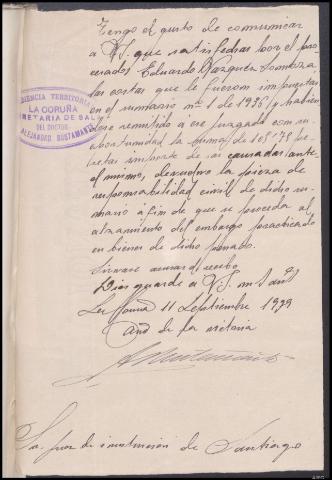 Tengo el gusto de comunicar
a V.S. que satisfechas por el pro-
cesado Eduardo Vazquez
las costas que le fueron impuestas
en el sumario nº 1 de 1936 y habien
remitido a ese juzgado con su
oportunidad la suma de 108'75 pe-
setas importe de las causadas ante
el mismo, devuelvo la pieza de
responsabilidad civil de dicho su-
mario a fin de que se proceda al
alzamiento del embargo practicado
en bienes de dicho penado.
Sirvase acusar recibo
Dios guarde a V.S. m
La Coruña 11 Septiembre 1939
Año de la Victoria
AUDIENCIA TERRITORIAL
LA CORUÑA
SECRETARIA DE SALA
DEL DOCTOR
ALEJANDRO BUSTAMANTE
Sr. Juez de instrucción de Santiago